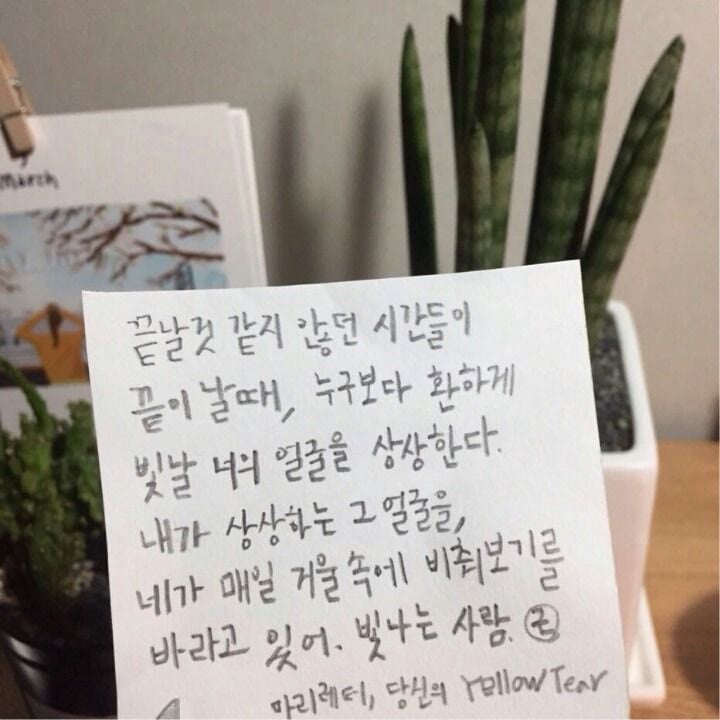 March
끝날것 같지 않던 시간들이
끝이 날때, 누구보다 환하게
빛날 너의 얼굴을 상상한다.
내가 상상하는 그 얼굴을,
네가 매일 거울 속에 비춰보기를
바라고 있어. 빛나는 사람.
마리레터, 당신의 Yellow Tear